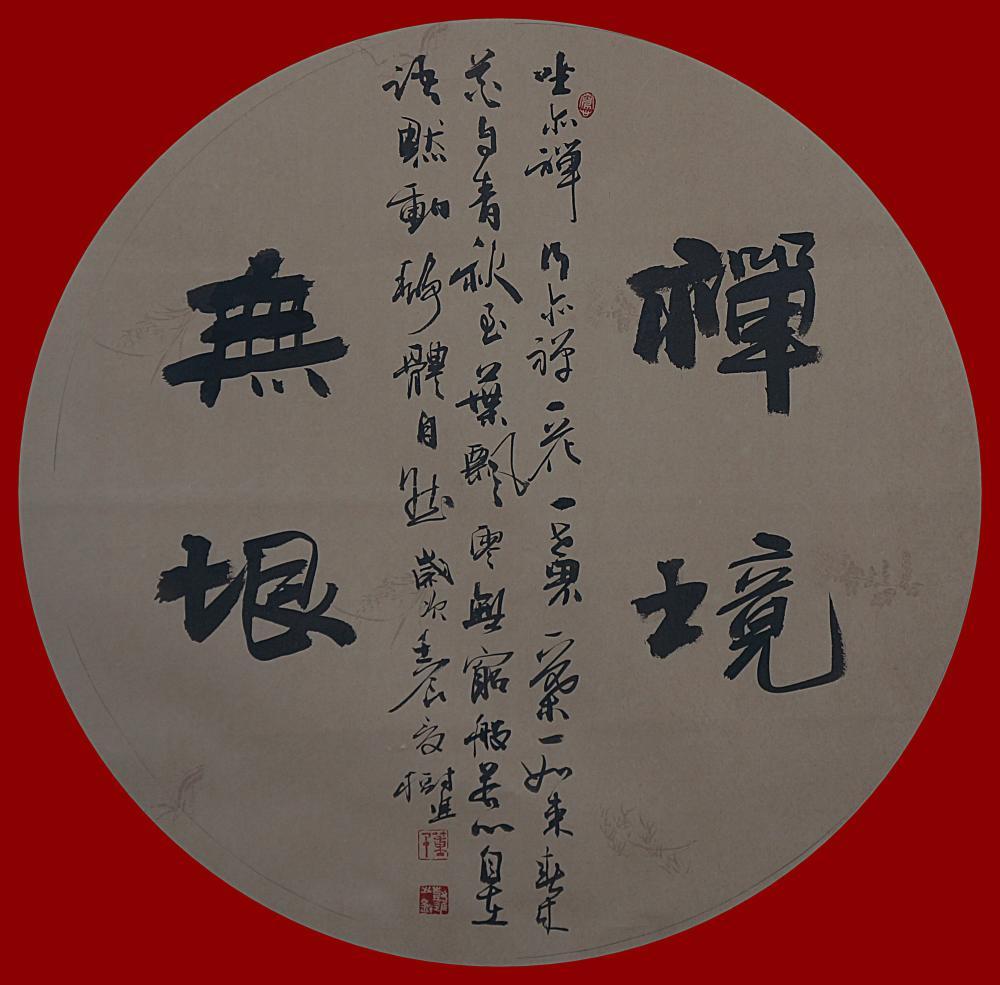 禪境
坐亦禪行亦禪一花一世界一葉一如來春來
花自青秋至葉飄零無窮般若心自在
語默動靜體自然歲次壬辰夏
無垠